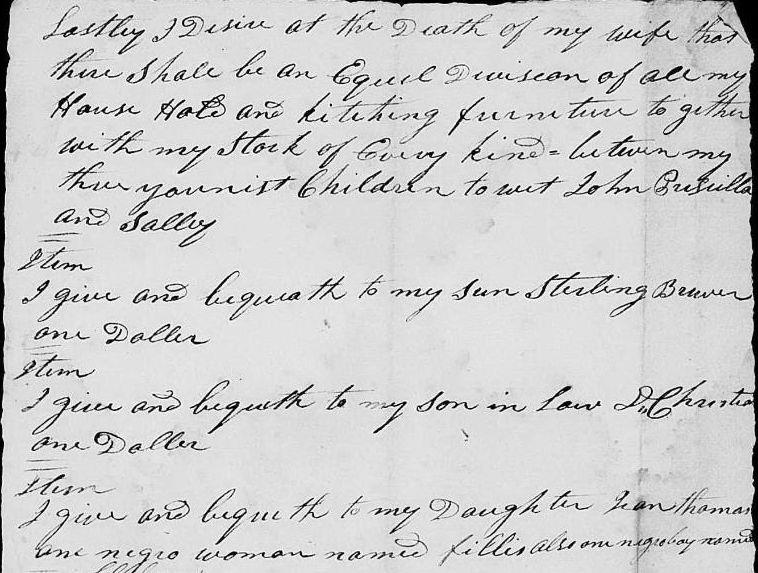 Lastley I Desire at the Death of my wife that
thire Shale be an Equel Diviseon of all my
House Hold and kitching furneture to gether
with my Stock of Every kind = between my
thre younist Children to wit John Prisilla
and Salley
Item
I give and bequeath to my Sun Sterling Brewer
one Daller
Item
I give and bequeth to my Son in Law Christia
one Daller
Item
I give and bequeth to my Daughter Jean thomas
one negro woman named fillis also one negro boy named